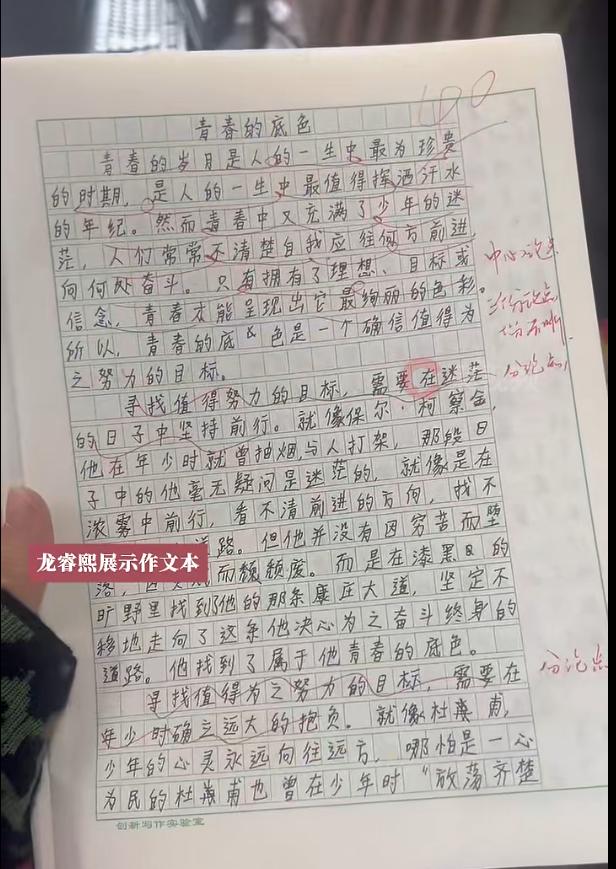 100
青春的底色
青春的岁月是人的一生中最为珍贵
的时期，是人的一生中最值得挥洒汗水
的年纪。然而青春中又充满了少年的迷
茫，人们常常不清楚自我应往何方前进，
向何处奋斗。只有拥有了理想、目标或
信念，青春才能呈现出它最绚丽的色彩。
所以，青春的底色是一个确信值得为
之努力的目标。
中心论点
分论点
分论点1
寻找值得努力的目标，需要在迷茫
的日子中坚持前行。就像保尔·柯察金，
他在年少时就曾抽烟，与人打架，那段日
子中的他毫无疑问是迷茫的，就像是在
浓雾中前行，看不清前进的方向，找不
道路。但他并没有因穷苦而堕
龙睿熙展示作文本
落，而颓废。而是在漆黑的
旷野里找到了他的那条康庄大道，坚定不
移地走向了这条他决心为之奋斗终身的
道路。他找到了属于他青春的底色。
寻找值得为之努力的目标，需要在
分论点
年少时确立远大的抱负。就像杜甫，
少年的心灵永远向往远方，哪怕是一心
为民的杜甫也曾在少年时“放荡齐楚
创新写作实验室